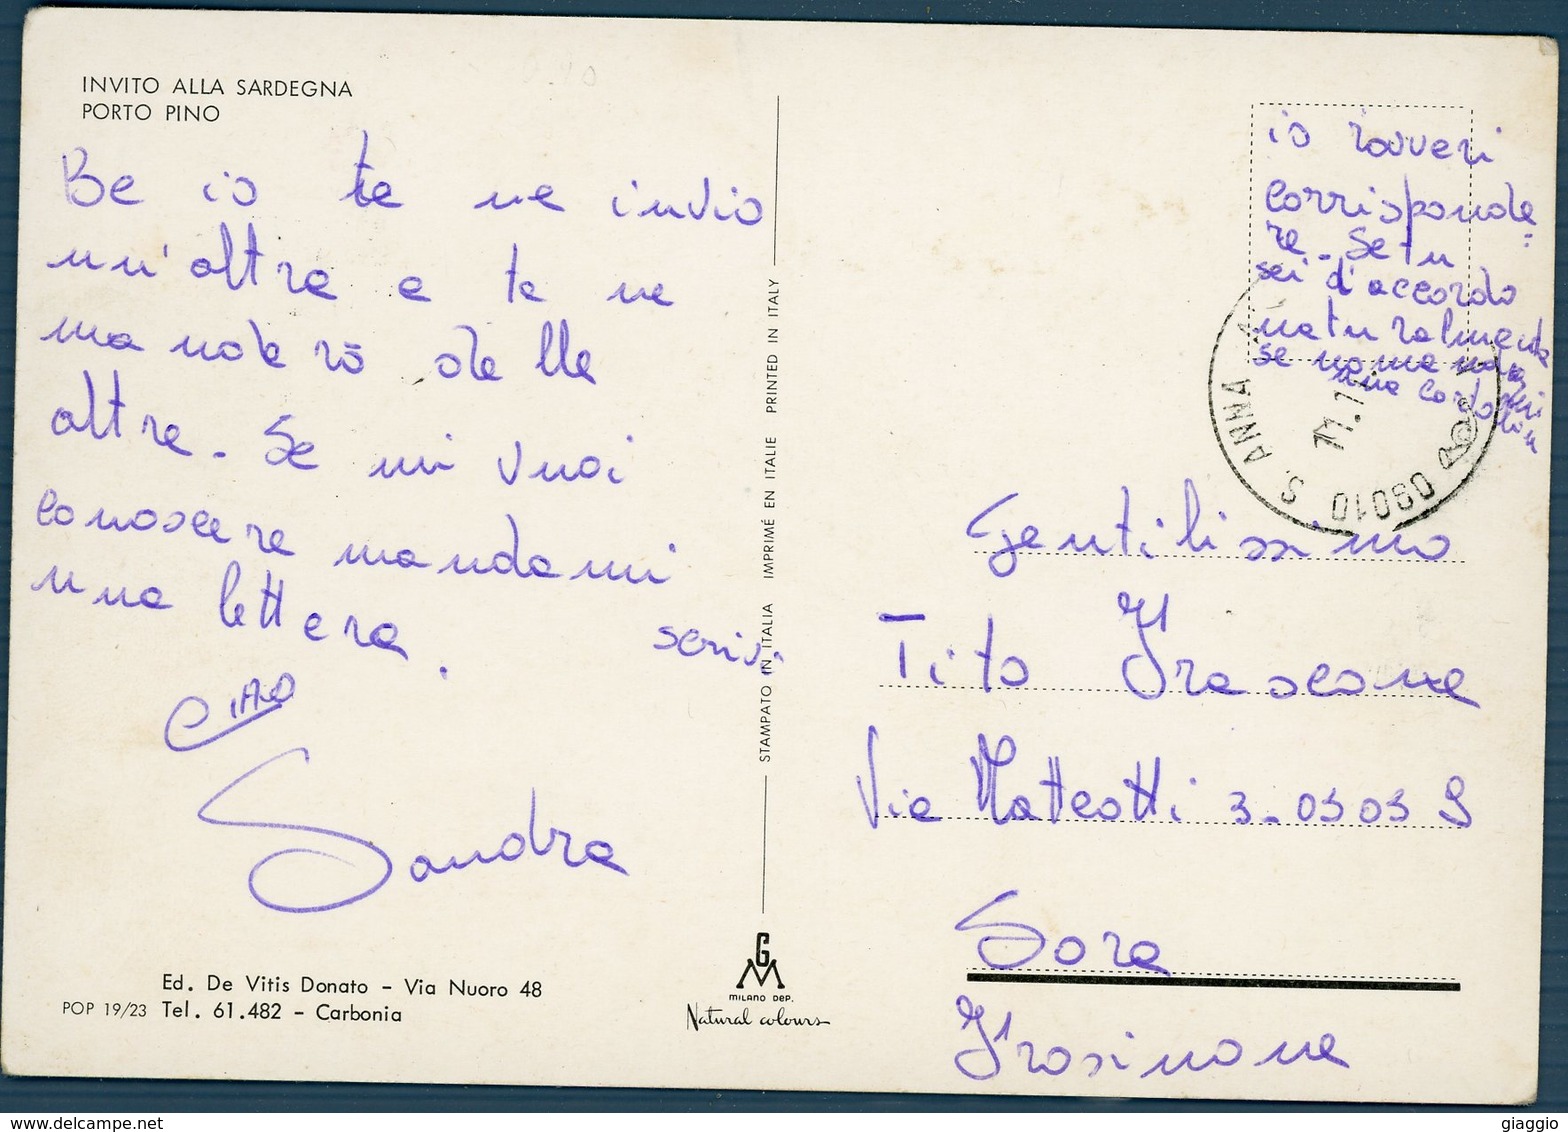 INVITO ALLA SARDEGNA
PORTO PINO
Be io te ne invio
un'altra e te ne
manderò delle
altre. Se mi vuoi
conoscere mandami
una lettera.
scrivi
CIAO
Sandra
Ed. De Vitis Donato - Via Nuoro 48
POP 19/23 Tel. 61.482 - Carbonia
STAMPATO IN ITALIA IMPRIMÉ EN ITALIE PRINTED IN ITALY
GM
MILANO DEP.
Natural colours
io vorrei
corrisponde=
re. Se tu
sei d'accordo
naturalmente
se no mandami
una cartolina
09010 S. ANNA
Gentilissimo
Tito Frascone
Via Matteotti 3-03039
Sora
Frosinone
giaggio